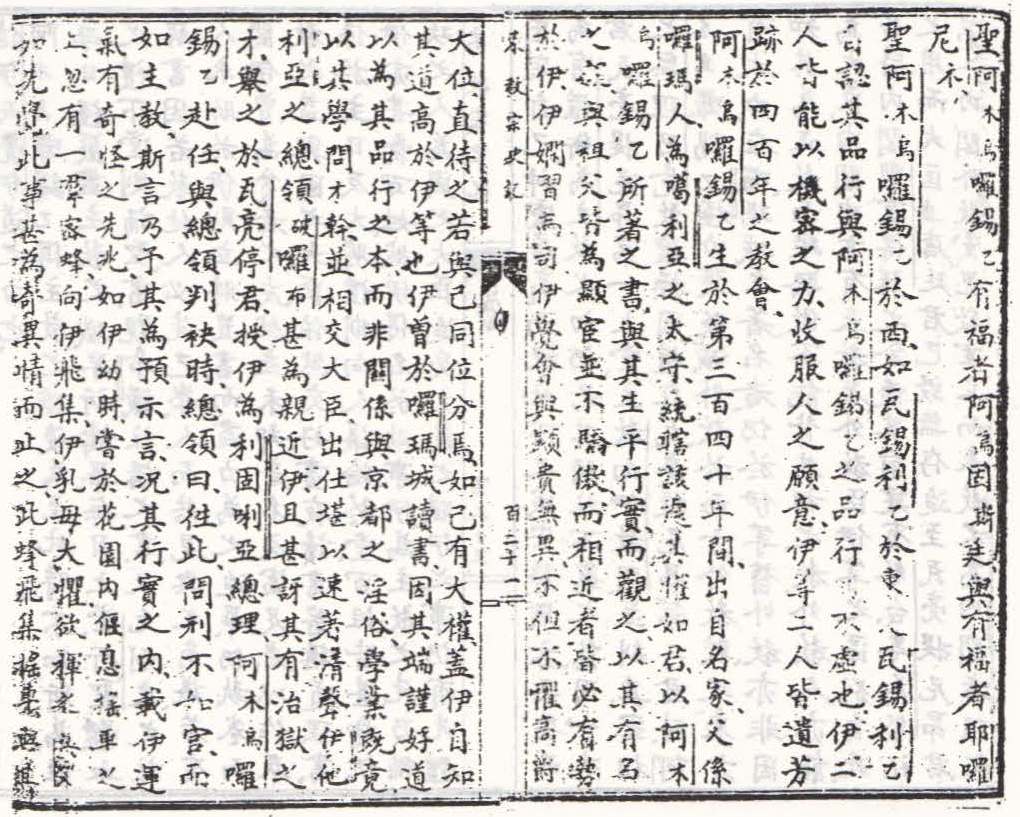 聖阿木烏囉錫乙有福者阿烏固斯廷與有福者耶囉
尼木
聖阿木烏囉錫乙於西如瓦錫利乙於東人瓦錫利乙
自認其品行與阿木烏囉錫乙之品行不虛也伊二
人皆能以機密之力收服人之願意伊等二人皆遺芳
跡於四百年之教會
阿木烏囉錫乙生於第三百四十年間出自名家父係
囉瑪人為噶利亞之太守統轄該處權如君以阿木
烏囉錫乙所著之書與其生平行實而觀之以其有名
之父與祖父皆為顯宦並不驕傲而相近者皆必有勢
於伊伊嫻習高詞伊覺會與顯貴無異不但不懼高爵
宗教宗史文
百二十一
大位直待之若與己同位分焉如己有大權蓋伊自知
其道高於伊等也伊曾於囉瑪城讀書因其端謹好道
以為其品行之本而非關係與京都之淫俗學業既竟
以其學問才幹並相交大臣出仕堪以速著清聲伊他
利亞之總領破囉布甚為親近伊且甚訝其有治獄之
才舉之於瓦亮停君授伊為利固唎亞總理阿木烏囉
錫乙赴任與總領判袂時總領曰往此問刑不如官而
如主教斯言乃予其為預示言況其行實之內載伊運
氣有奇怪之先兆如伊幼時嘗於花園內偃息搖車之
上忽有一羣蜜蜂向伊飛集伊乳母大懼欲揮去與父
如先覺此事甚為奇異情而止之此蜂飛集搖